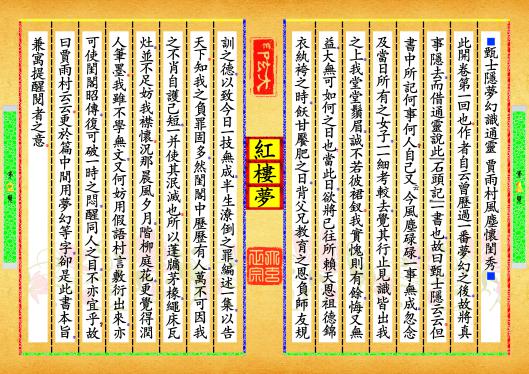 甄士隱夢幻識通靈　賈雨村風塵懷閨秀
此開卷第一回也作者自云曾歷過一番夢幻之後故將真
事隱去而借通靈說此石頭記一書也故曰甄士隱云云但
書中所記何事何人自己又云今風塵碌碌一事無成忽念
及當日所有之女子一一細考較去覺其行止見識皆出我
之上我堂堂鬚眉誠不若彼裙釵我實愧則有餘悔又無
益大無可如何之日也當此日欲將已往所賴天恩祖德錦
衣紈袴之時飫甘饜肥之日背父兄教育之恩負師友規
紅樓夢
訓之德以致今日一技無成半生潦倒之罪編述一集以告
天下知我之負罪固多然閨閣中歷歷有人萬不可因我
之不肖自護己短一并使其泯滅也所以蓬牖茅椽繩床瓦
灶並不足妨我襟懷況那晨風夕月階柳庭花更覺得潤
人筆墨我雖不學無文又何妨用假語村言敷衍出來亦
可使閨閣昭傳復可破一時之悶醒同人之目不亦宜乎故
曰賈雨村云云更於篇中間用夢幻等字卻是此書本旨
兼寓提醒閱者之意